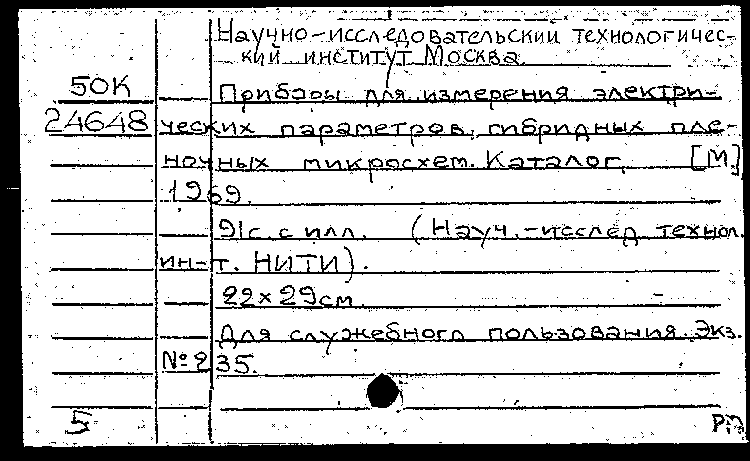 Научно-исследовательский технологичес-
кий институт Москва.
50К
Приборы для измерения электри-
24648
ческих параметров гибридных пле-
ночных микросхем. Каталог. [М.]
1969.
91с. с илл. (Науч.-исслед. технол.
ин-т. НИТИ).
22×29см.
Для служебного пользования. Экз.
№235.
5